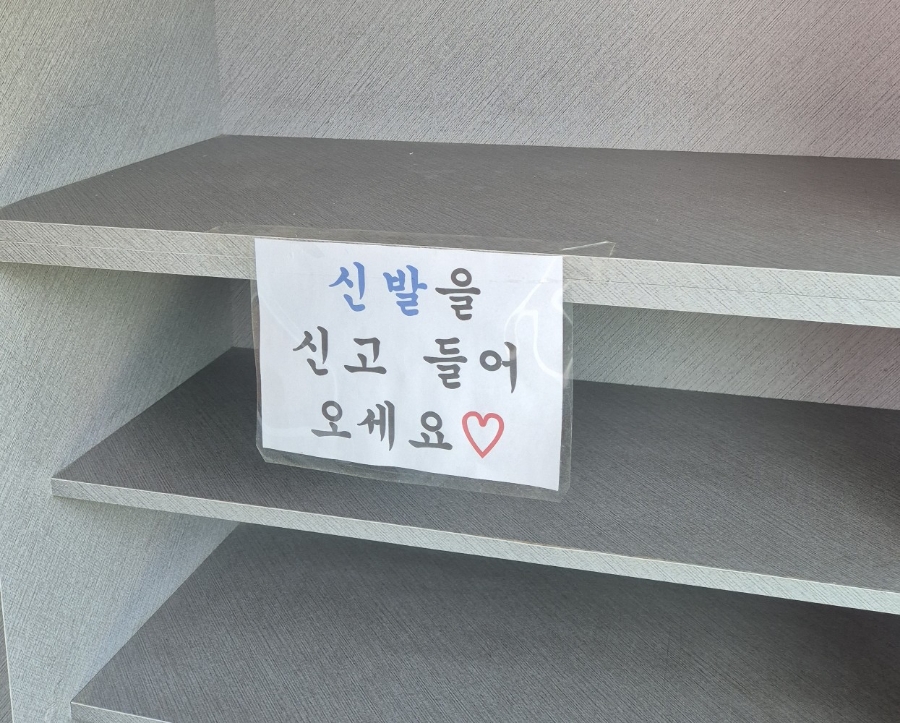 신발을
신고 들어
오세요♡